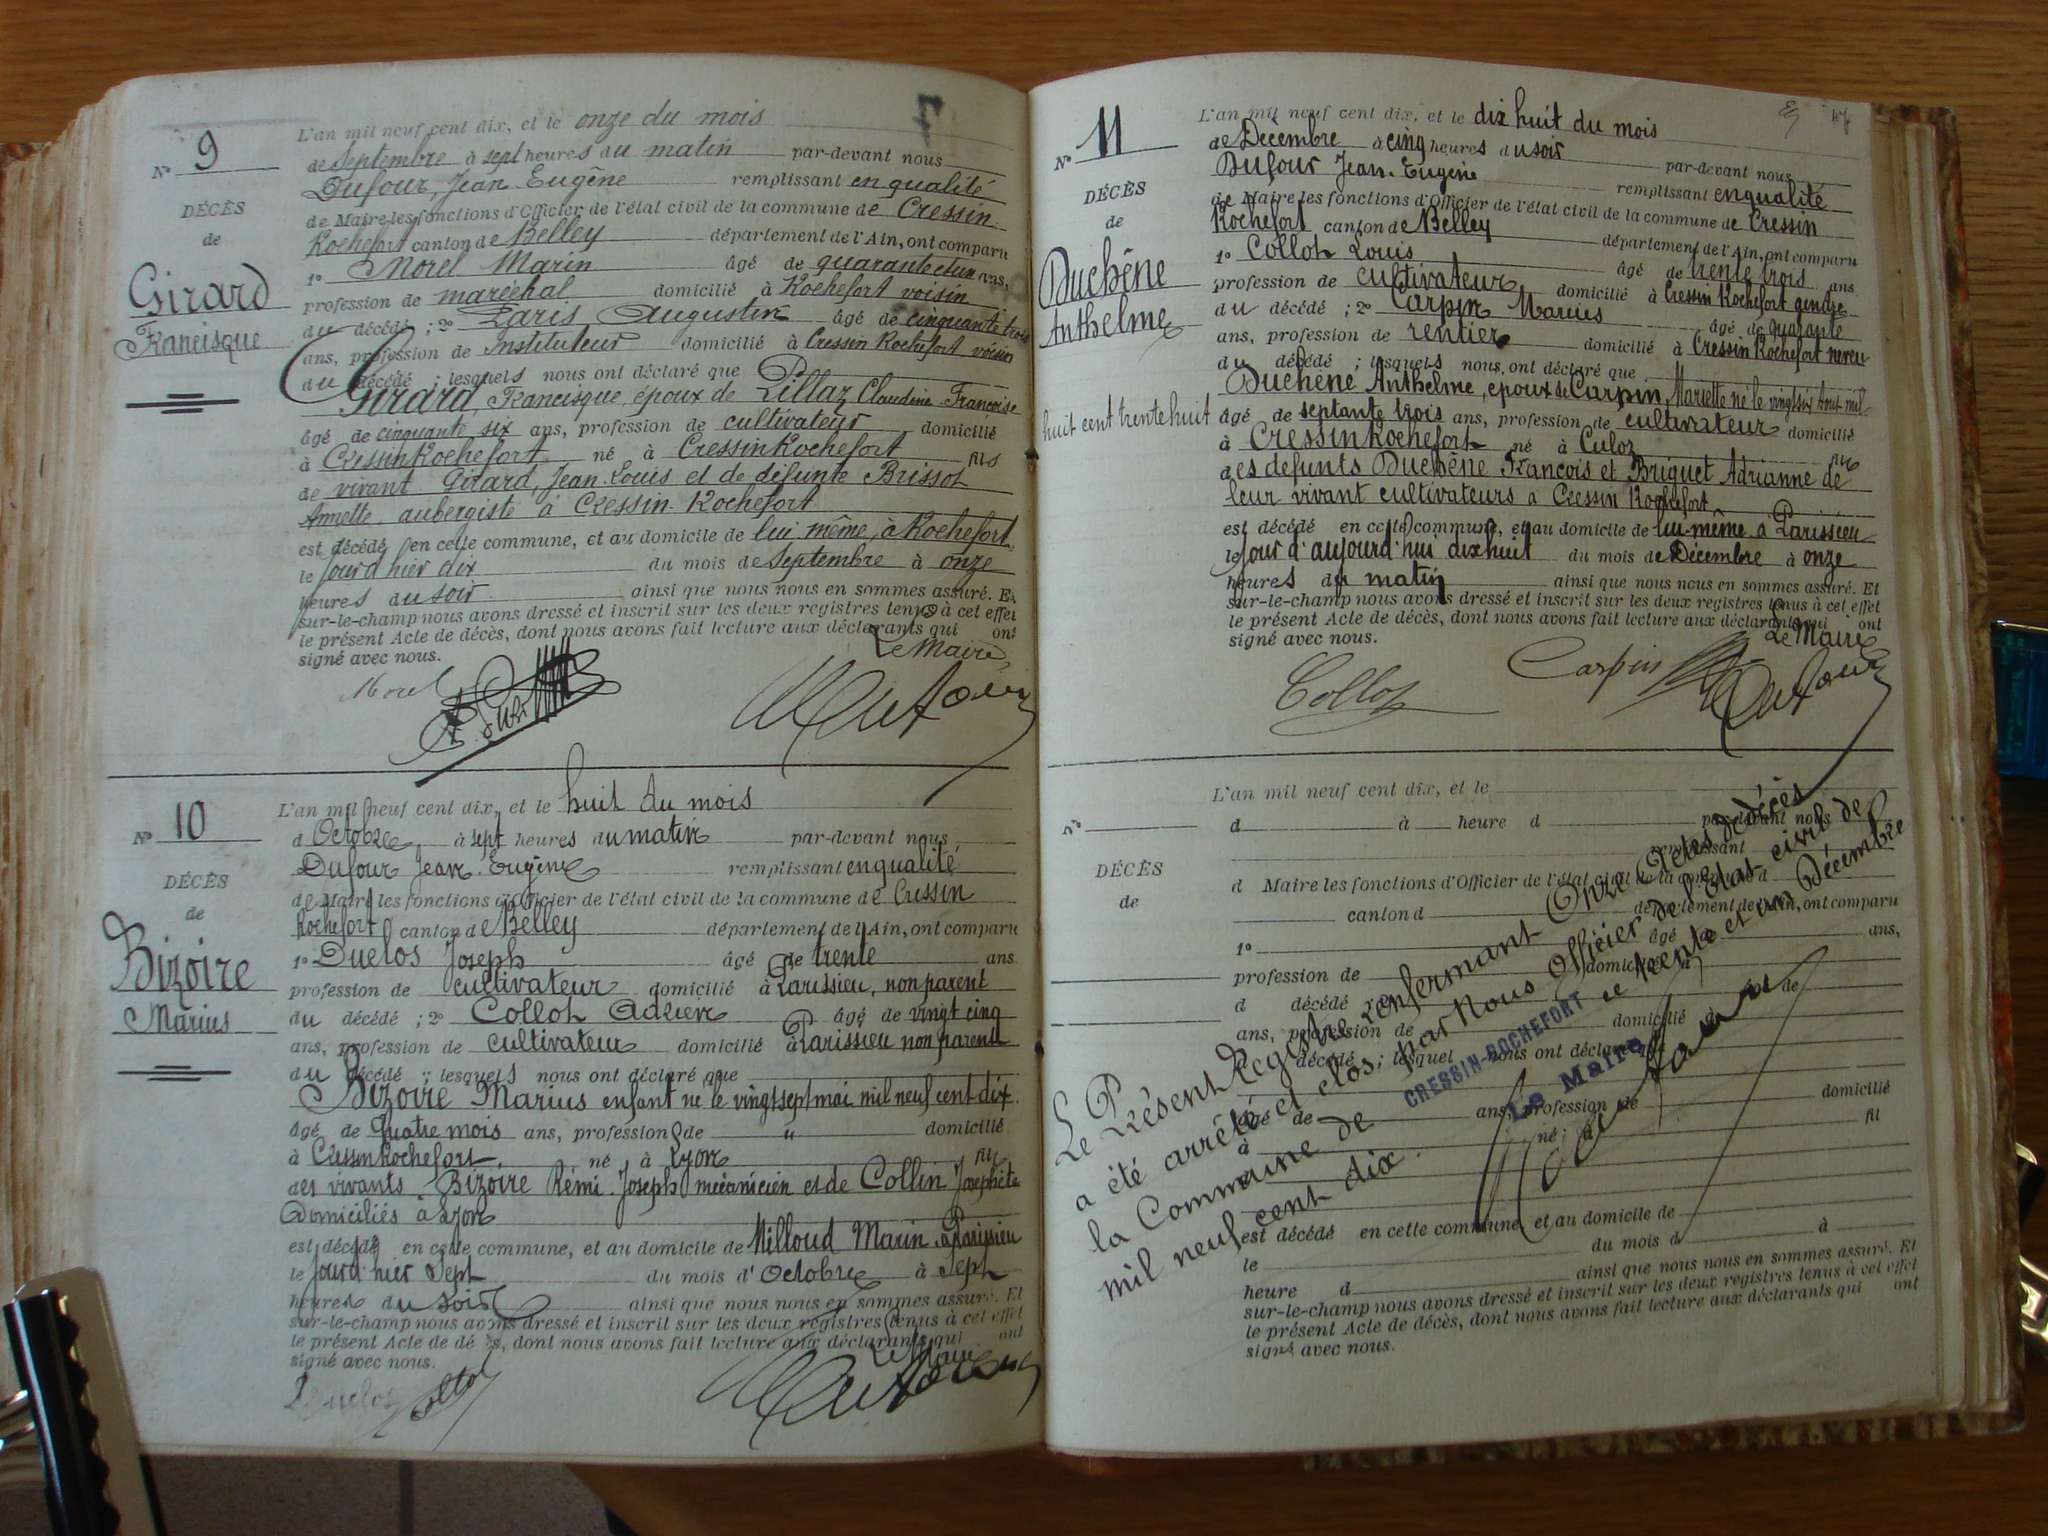 N° 9
DÉCÈS
de
Girard
Francisque
L'an mil neuf cent dix, et le onze du mois
de Septembre à sept heures du matin par-devant nous
Dufour, Jean Eugène remplissant en qualité
de Maire les fonctions d'Officier de l'état civil de la commune de Cressin
Rochefort canton de Belley département de l'Ain, ont comparu
1° Morel Marin âgé de quarante et un ans,
profession de maréchal domicilié à Rochefort voisin
du décédé ; 2° Augustin âgé de cinquante trois
ans, profession de Instituteur domicilié à Cressin Rochefort voisin
du décédé ; lesquels nous ont déclaré que
Girard, Francisque, époux de Pillaz Claudine Françoise
âgé de cinquante six ans, profession de cultivateur domicilié
à Cressin Rochefort né à Cressin Rochefort fils
de vivant Girard, Jean Louis et de défunte Brissot
Annette, aubergiste à Cressin-Rochefort
est décédé en cette commune, et au domicile de lui même, à Rochefort
le jour d'hier dix du mois de Septembre à onze
heures du soir ainsi que nous nous en sommes assuré. Et
sur-le-champ nous avons dressé et inscrit sur les deux registres tenus à cet effet
le présent Acte de décès, dont nous avons fait lecture aux déclarants qui ont
signé avec nous. Le Maire,
Morel Dufour
N° 10
DÉCÈS
de
Bizoire
Marius
L'an mil neuf cent dix, et le huit du mois
d Octobre à sept heures du matin par-devant nous
Dufour Jean Eugène remplissant en qualité
de Maire les fonctions d'Officier de l'état civil de la commune de Cressin
Rochefort canton de Belley département de l'Ain, ont comparu
1° Duclos Joseph âgé de trente ans
profession de cultivateur domicilié à Parissieu, non parent
du décédé ; 2° Collot Adrien âgé de vingt cinq
ans, profession de cultivateur domicilié à Parissieu non parent
du décédé ; lesquels nous ont déclaré que
Bizoire Marius enfant né le vingt sept mai mil neuf cent dix.
âgé de quatre mois ans, profession de " domicilié
à Cressin Rochefort né à Lyon fils
des vivants Bizoire Rémi Joseph mécanicien et de Collin Josephte
Domiciliés à Lyon
est décédé en cette commune, et au domicile de Milloud Marin à Parissieu
le jour d'hier Sept du mois d'Octobre à Sept
heures du soir ainsi que nous nous en sommes assuré. Et
sur-le-champ nous avons dressé et inscrit sur les deux registres tenus à cet effet
le présent Acte de décès, dont nous avons fait lecture aux déclarants qui ont
signé avec nous. Le Maire
Duclos Dufour
N° 11
DÉCÈS
de
Duchêne
Anthelme
L'an mil neuf cent dix, et le dix huit du mois
de Décembre à cinq heures du soir par-devant nous
Dufour Jean Eugène remplissant en qualité
de Maire les fonctions d'Officier de l'état civil de la commune de Cressin
Rochefort canton de Belley département de l'Ain, ont comparu
1° Collot Louis âgé de trente trois ans
profession de cultivateur domicilié à Cressin Rochefort gendre
du décédé ; 2° Carpin Marius âgé de quarante
ans, profession de rentier domicilié à Cressin Rochefort neveu
du décédé ; lesquels nous ont déclaré que
Duchêne Anthelme, époux de Carpin, Mariette né le vingt six Aout mil
huit cent trente huit âgé de septante trois ans, profession de cultivateur domicilié
à Cressin Rochefort né à Culoz fils
des defunts Duchêne François et Briquet Adrianne de
leur vivant cultivateurs à Cressin Rochefort
est décédé en cette commune, et au domicile de lui-même à Parissieu
le jour d'aujourd'hui dix huit du mois de Décembre à onze
heures du matin ainsi que nous nous en sommes assuré. Et
sur-le-champ nous avons dressé et inscrit sur les deux registres tenus à cet effet
le présent Acte de décès, dont nous avons fait lecture aux déclarants qui ont
signé avec nous. Le Maire
Collot Carpin Dufour
N°
DÉCÈS
de
L'an mil neuf cent dix, et le
d à heure d par-devant nous
remplissant
d Maire les fonctions d'Officier de l'état civil de la commune d
canton d département de l'Ain, ont comparu
1° âgé de ans,
profession de domicilié à
d décédé ; 2° âgé de
ans, profession de domicilié à
d décédé ; lesquel nous ont déclaré que
âgé de ans, profession de domicilié
à né à fil
est décédé en cette commune, et au domicile de
le du mois d à
heure d ainsi que nous nous en sommes assuré. Et
sur-le-champ nous avons dressé et inscrit sur les deux registres tenus à cet effet
le présent Acte de décès, dont nous avons fait lecture aux déclarants qui ont
signé avec nous.
Le Présent Registre renfermant Onze Actes de décès
a été arrêté et clos par Nous Officier de l'Etat civil de
la Commune de CRESSIN-ROCHEFORT le trente et un Décembre
mil neuf cent dix.
Le Maire
Dufour